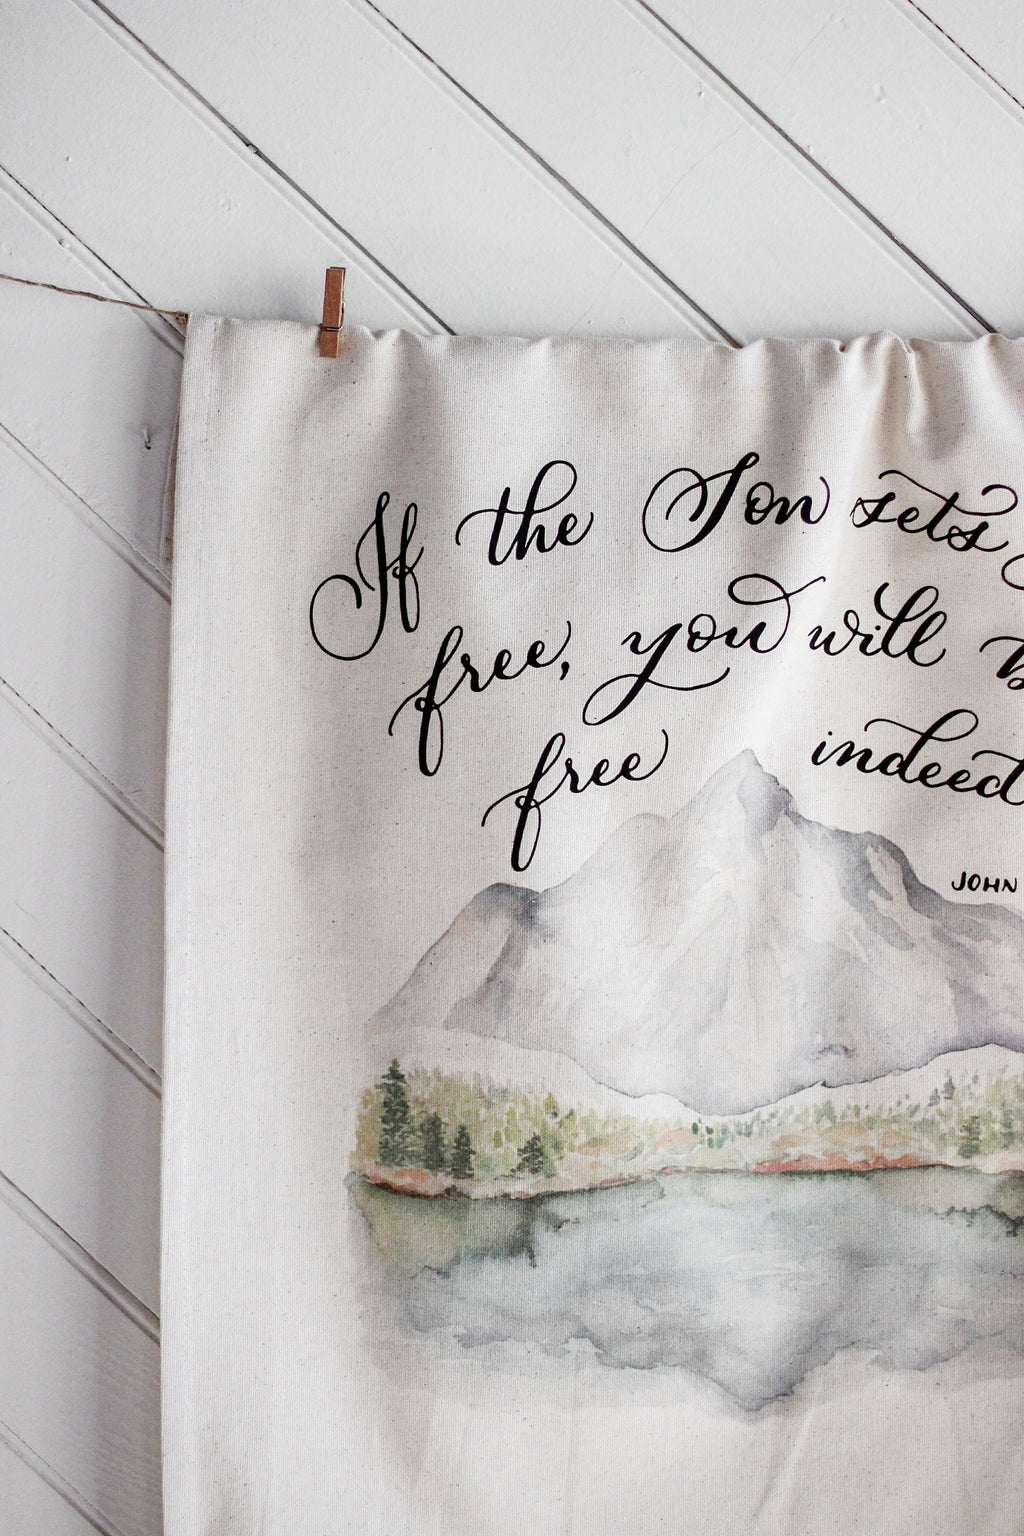 If the Son sets
free, you will
free indeed
JOHN